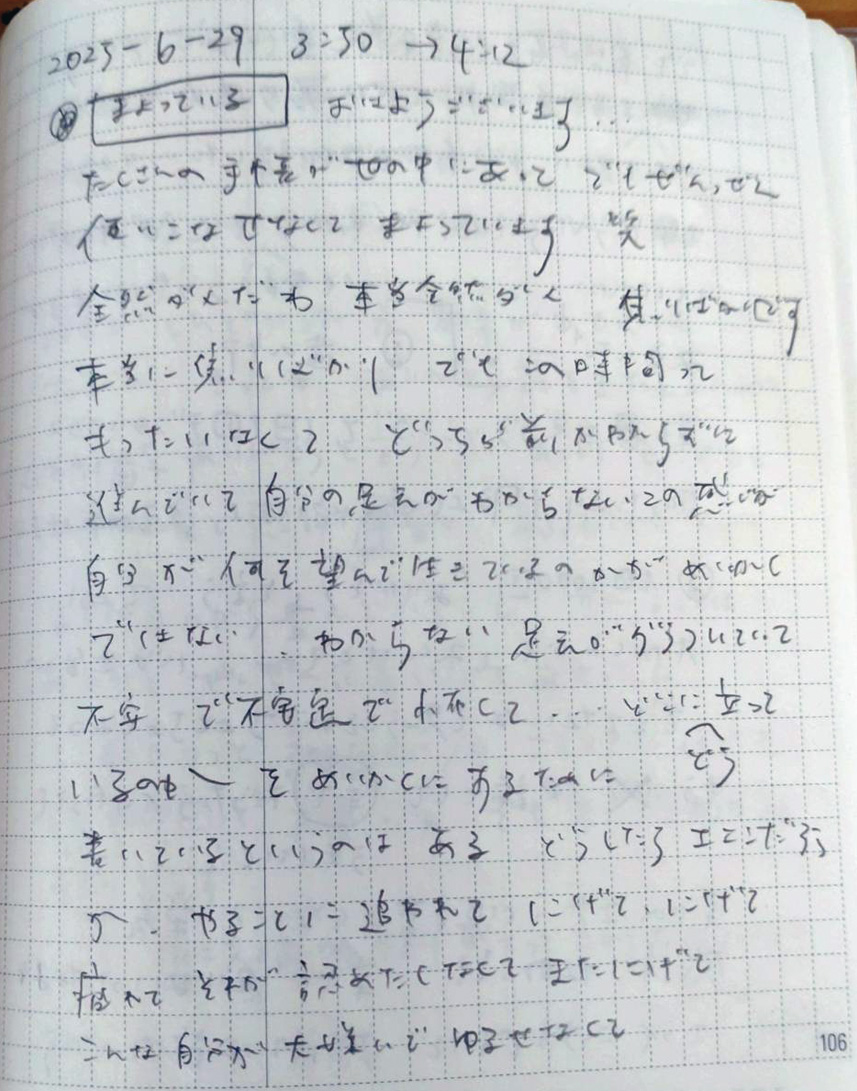 2025-6-29 3:50 → 4:12
まよっている おはようございます...
たくさんの 手や書が 世の中にあって でもぜんぜん
使いこなせなくて まよっています 笑
全然ダメだわ 本当全然ダメ 焦りばかりです
本当に焦りばかり でも この時間って
もったいなくて どっちが前かわからずに
進んでいて 自分の足元が わからない この想いが
自分が何を望んで生きているのかが めいかく
ではない わからない 足元がぐらついていて
不安 で不安定で 小冊って... どこに立って
いるのか を めいかくにするために どう
書いているというのは ある どうしたら
へ. やることに追われて にげて、にげて
疲れて それが 認めたくなくて またにげて
こんな自分が 大嫌いで ゆるせなくて
106